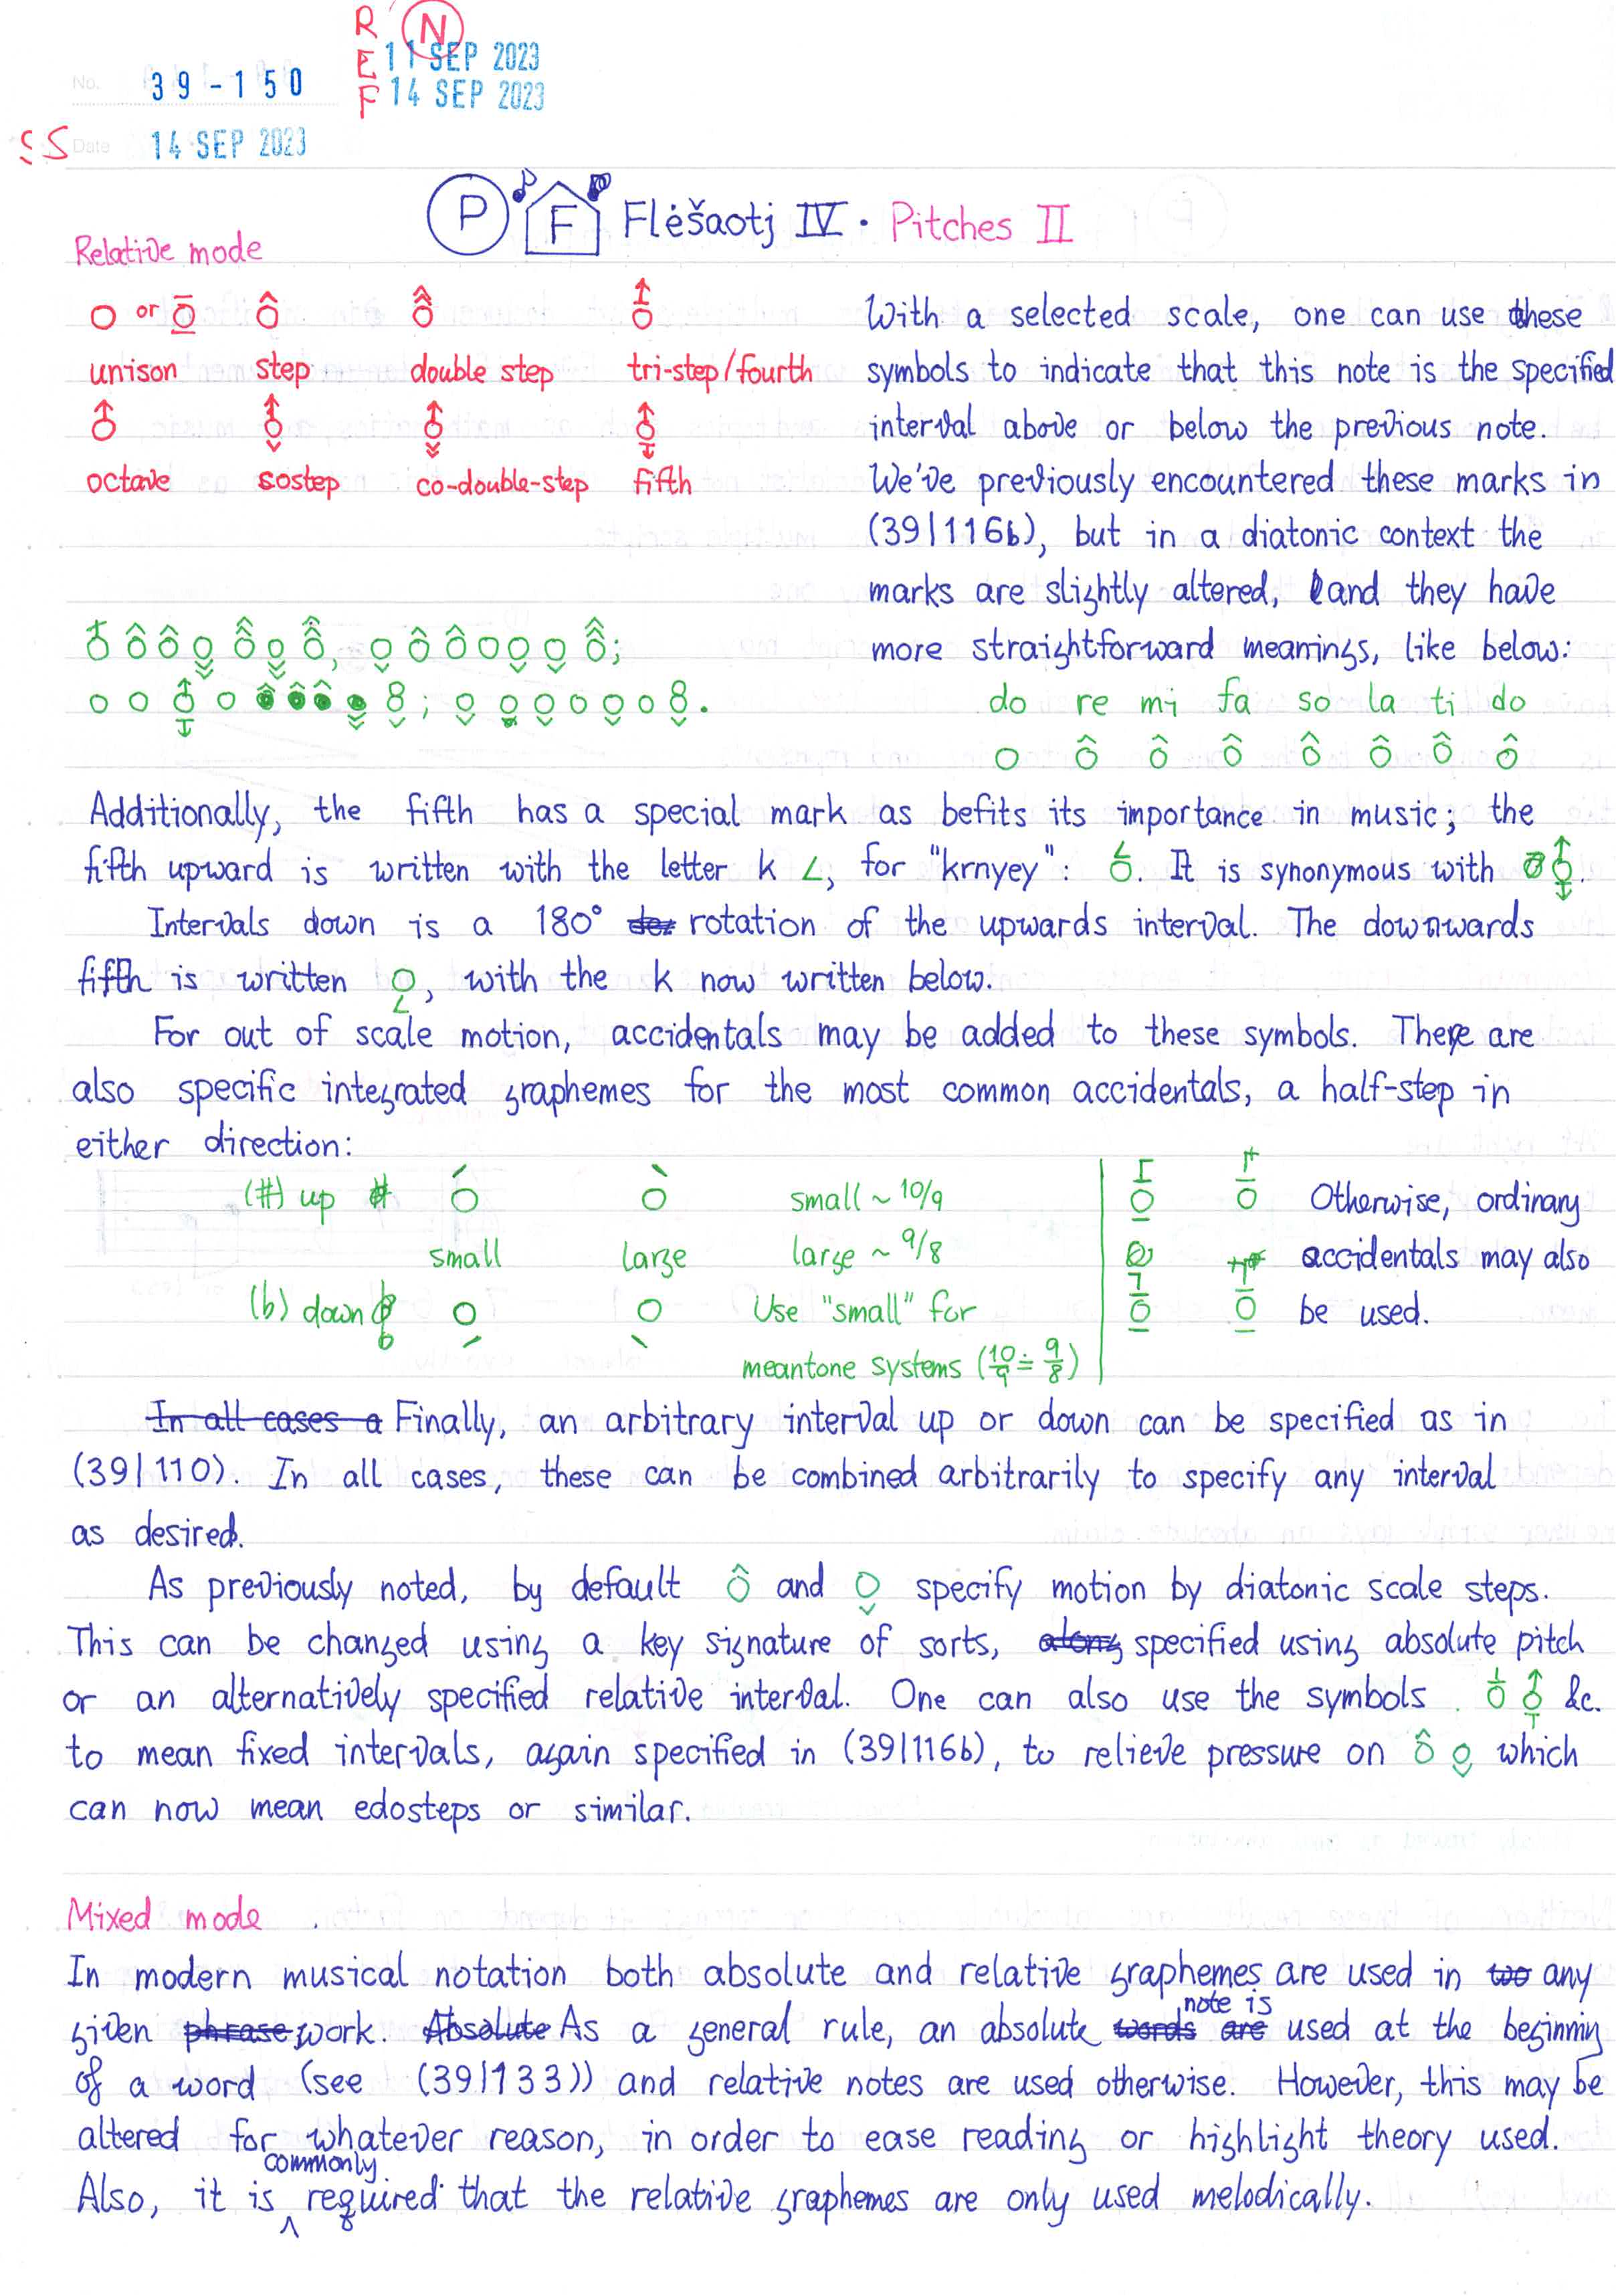 R
E
F
N
11 SEP 2023
14 SEP 2023
No. 39-150
SS Date 14 SEP 2023
P F Flėšaotj IV · Pitches II
Relative mode
o or o̲̅
unison step double step tri-step/fourth
octave costep co-double-step fifth
With a selected scale, one can use these
symbols to indicate that this note is the specified
interval above or below the previous note.
We've previously encountered these marks in
(39|116b), but in a diatonic context the
marks are slightly altered, and they have
more straightforward meanings, like below:
do re mi fa so la ti do
o ô ô ô ô ô ô ô
Additionally, the fifth has a special mark as befits its importance in music; the
fifth upward is written with the letter k ∠, for "krnyey": . It is synonymous with .
Intervals down is a 180° rotation of the upwards interval. The downwards
fifth is written , with the k now written below.
For out of scale motion, accidentals may be added to these symbols. There are
also specific integrated graphemes for the most common accidentals, a half-step in
either direction:
(#) up ó ò small ~ 10/9
small large large ~ 9/8
(b) down o o Use "small" for
meantone systems (10/9 ≐ 9/8)
Otherwise, ordinary
accidentals may also
be used.
In all cases a Finally, an arbitrary interval up or down can be specified as in
(39|110). In all cases, these can be combined arbitrarily to specify any interval
as desired.
As previously noted, by default ô and o̬ specify motion by diatonic scale steps.
This can be changed using a key signature of sorts, along specified using absolute pitch
or an alternatively specified relative interval. One can also use the symbols &c.
to mean fixed intervals, again specified in (39|116b), to relieve pressure on ô o̬ which
can now mean edosteps or similar.
Mixed mode
In modern musical notation both absolute and relative graphemes are used in too any
given phrase work. Absolute As a general rule, an absolute words are note is used at the beginning
of a word (see (39|133)) and relative notes are used otherwise. However, this may be
altered for whatever reason, in order to ease reading or highlight theory used.
Also, it is commonly required that the relative graphemes are only used melodically.